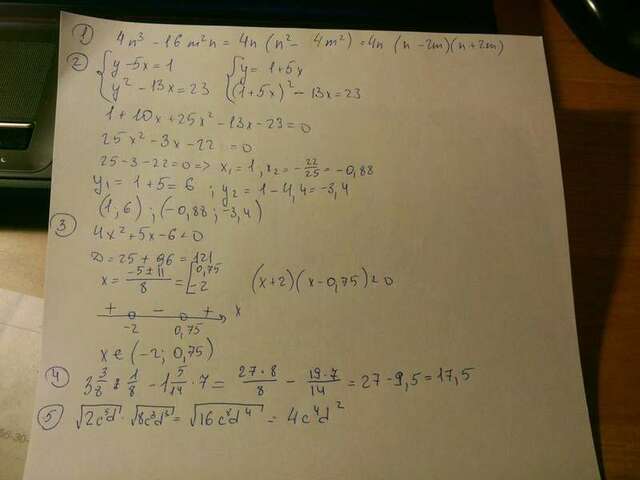 ① 4n³ - 16m²n = 4n (n² - 4m²) = 4n (n - 2m)(n + 2m)
② { y - 5x = 1 { y = 1 + 5x
y² - 13x = 23 (1 + 5x)² - 13x = 23
1 + 10x + 25x² - 13x - 23 = 0
25x² - 3x - 22 = 0
25 - 3 - 22 = 0 => x₁ = 1, x₂ = -22/25 = -0,88
y₁ = 1 + 5 = 6 ; y₂ = 1 - 4,4 = -3,4
(1; 6) ; (-0,88; -3,4)
③ 4x² + 5x - 6 < 0
D = 25 + 96 = 121
x = (-5 ± 11)/8 = [ 0,75 -2 (x + 2)(x - 0,75) < 0
+ - + x
-2 0,75
x ∈ (-2; 0,75)
④ 3 3/8 : 1/8 - 1 5/14 · 7 = 27·8/8 - 19·7/14 = 27 - 9,5 = 17,5
⑤ = √16c⁸d⁴ = 4c⁴d²